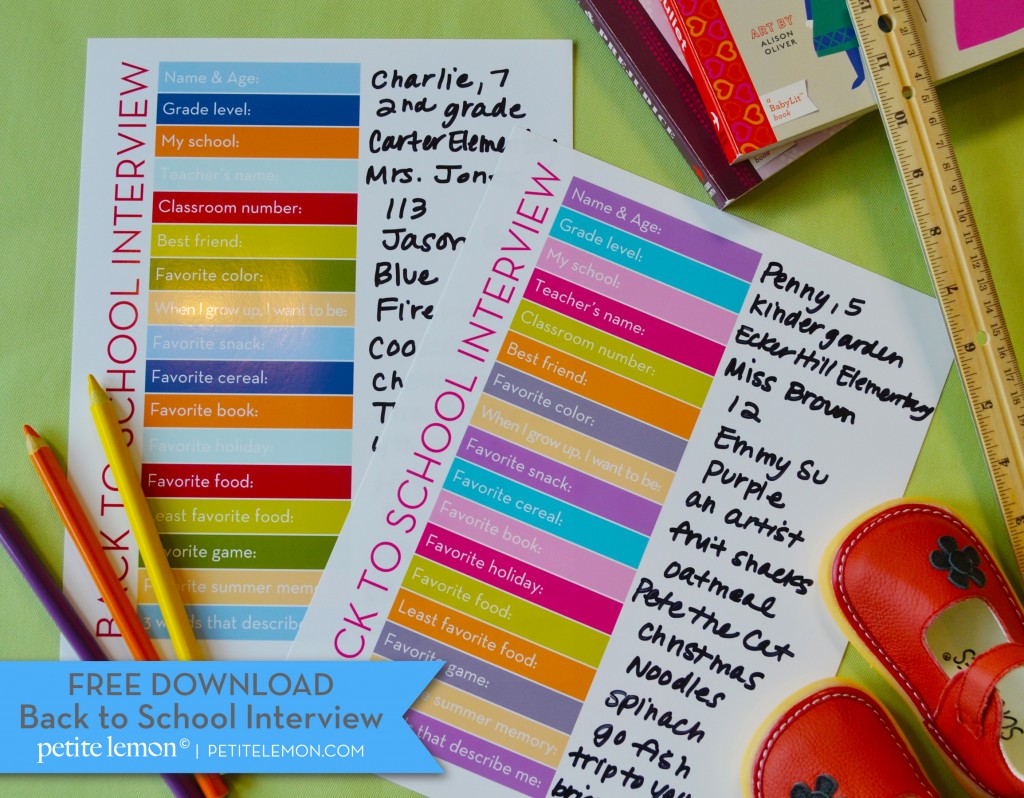 BACK TO SCHOOL INTERVIEW
Name & Age: Charlie, 7
Grade level: 2nd grade
My school: Carter
Teacher's name: Mrs.
Classroom number: 113
Best friend: Jason
Favorite color: Blue
When I grow up, I want to be: Fire
Favorite snack:
Favorite cereal:
Favorite book:
Favorite holiday:
Favorite food:
Least favorite food:
Favorite game:
Favorite summer
3 words that describe
CK TO SCHOOL INTERVIEW
Name & Age: Penny, 5
Grade level: Kindergarden
My school: Ecker Hill Elementary
Teacher's name: Miss Brown
Classroom number: 12
Best friend: Emmy Su
Favorite color: Purple
When I grow up, I want to be: an artist
Favorite snack: fruit snacks
Favorite cereal: oatmeal
Favorite book: Pete the Cat
Favorite holiday: Christmas
Favorite food: Noodles
Least favorite food: spinach
game: go fish
summer memory: trip to
that describe me:
ART BY
ALISON
OLIVER
a
BabyLit™
book
book
uliet
11
10
9
FREE DOWNLOAD
Back to School Interview
petite lemon© | PETITELEMON.COM